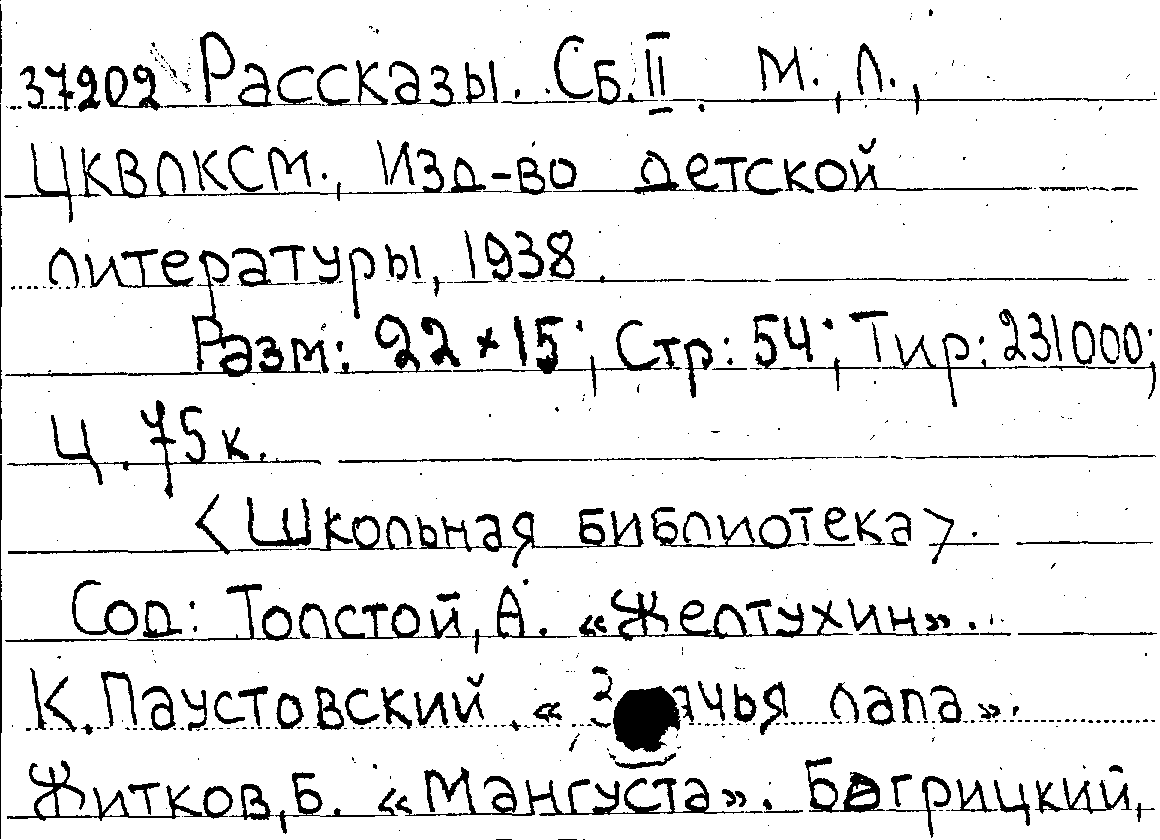 37202 Рассказы. Сб. II. М., Л.,
ЦКВЛКСМ., Изд-во детской
литературы, 1938.
Разм: 22 × 15; Стр: 54; Тир: 231000;
Ц. 75 к.
<Школьная библиотека>.
Сод: Толстой, А. «Желтухин».
К. Паустовский. « лапа».
Житков, Б. «Мангуста». Багрицкий,